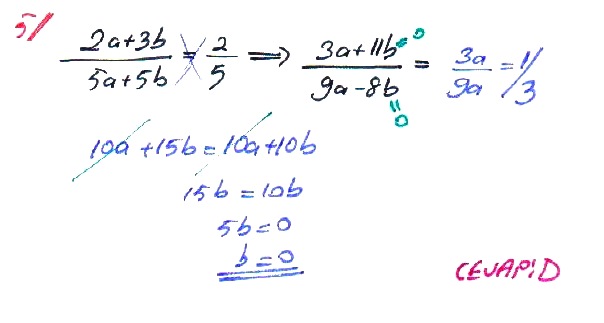 5/ (2a+3b)/(5a+5b) = 2/5 ⟹ (3a+11b)/(9a-8b) = 3a/9a = 1/3
0
=0
10a + 15b = 10a + 10b
15b = 10b
5b = 0
b = 0
CEVAP: D